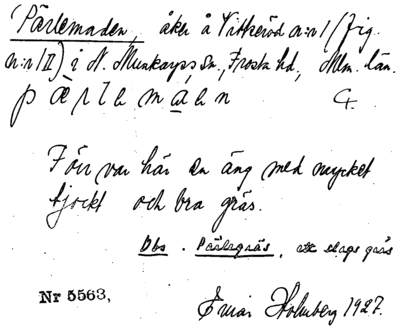 Pärlemaden, åker å Vittseröd n:r 1 (fig.
n:r II) i N. Munkarps sn., Frosta hd, Mlm. län.
pærlemáen
Förr var här en äng med mycket
tjockt och bra gräs.
Obs. Pärlegräs, ett slags gräs
Nr 5563,
Einar Holmberg 1927.